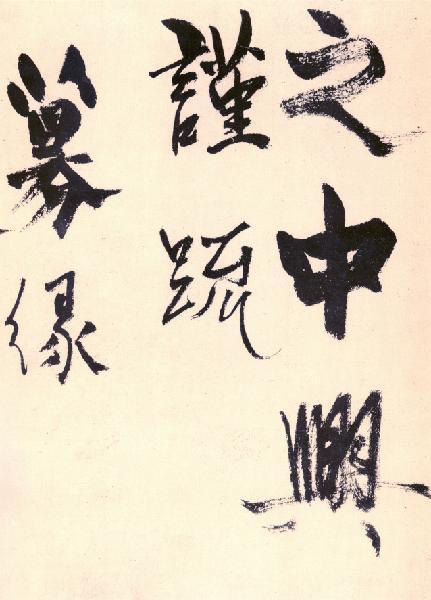 之中興
謹疏
募緣